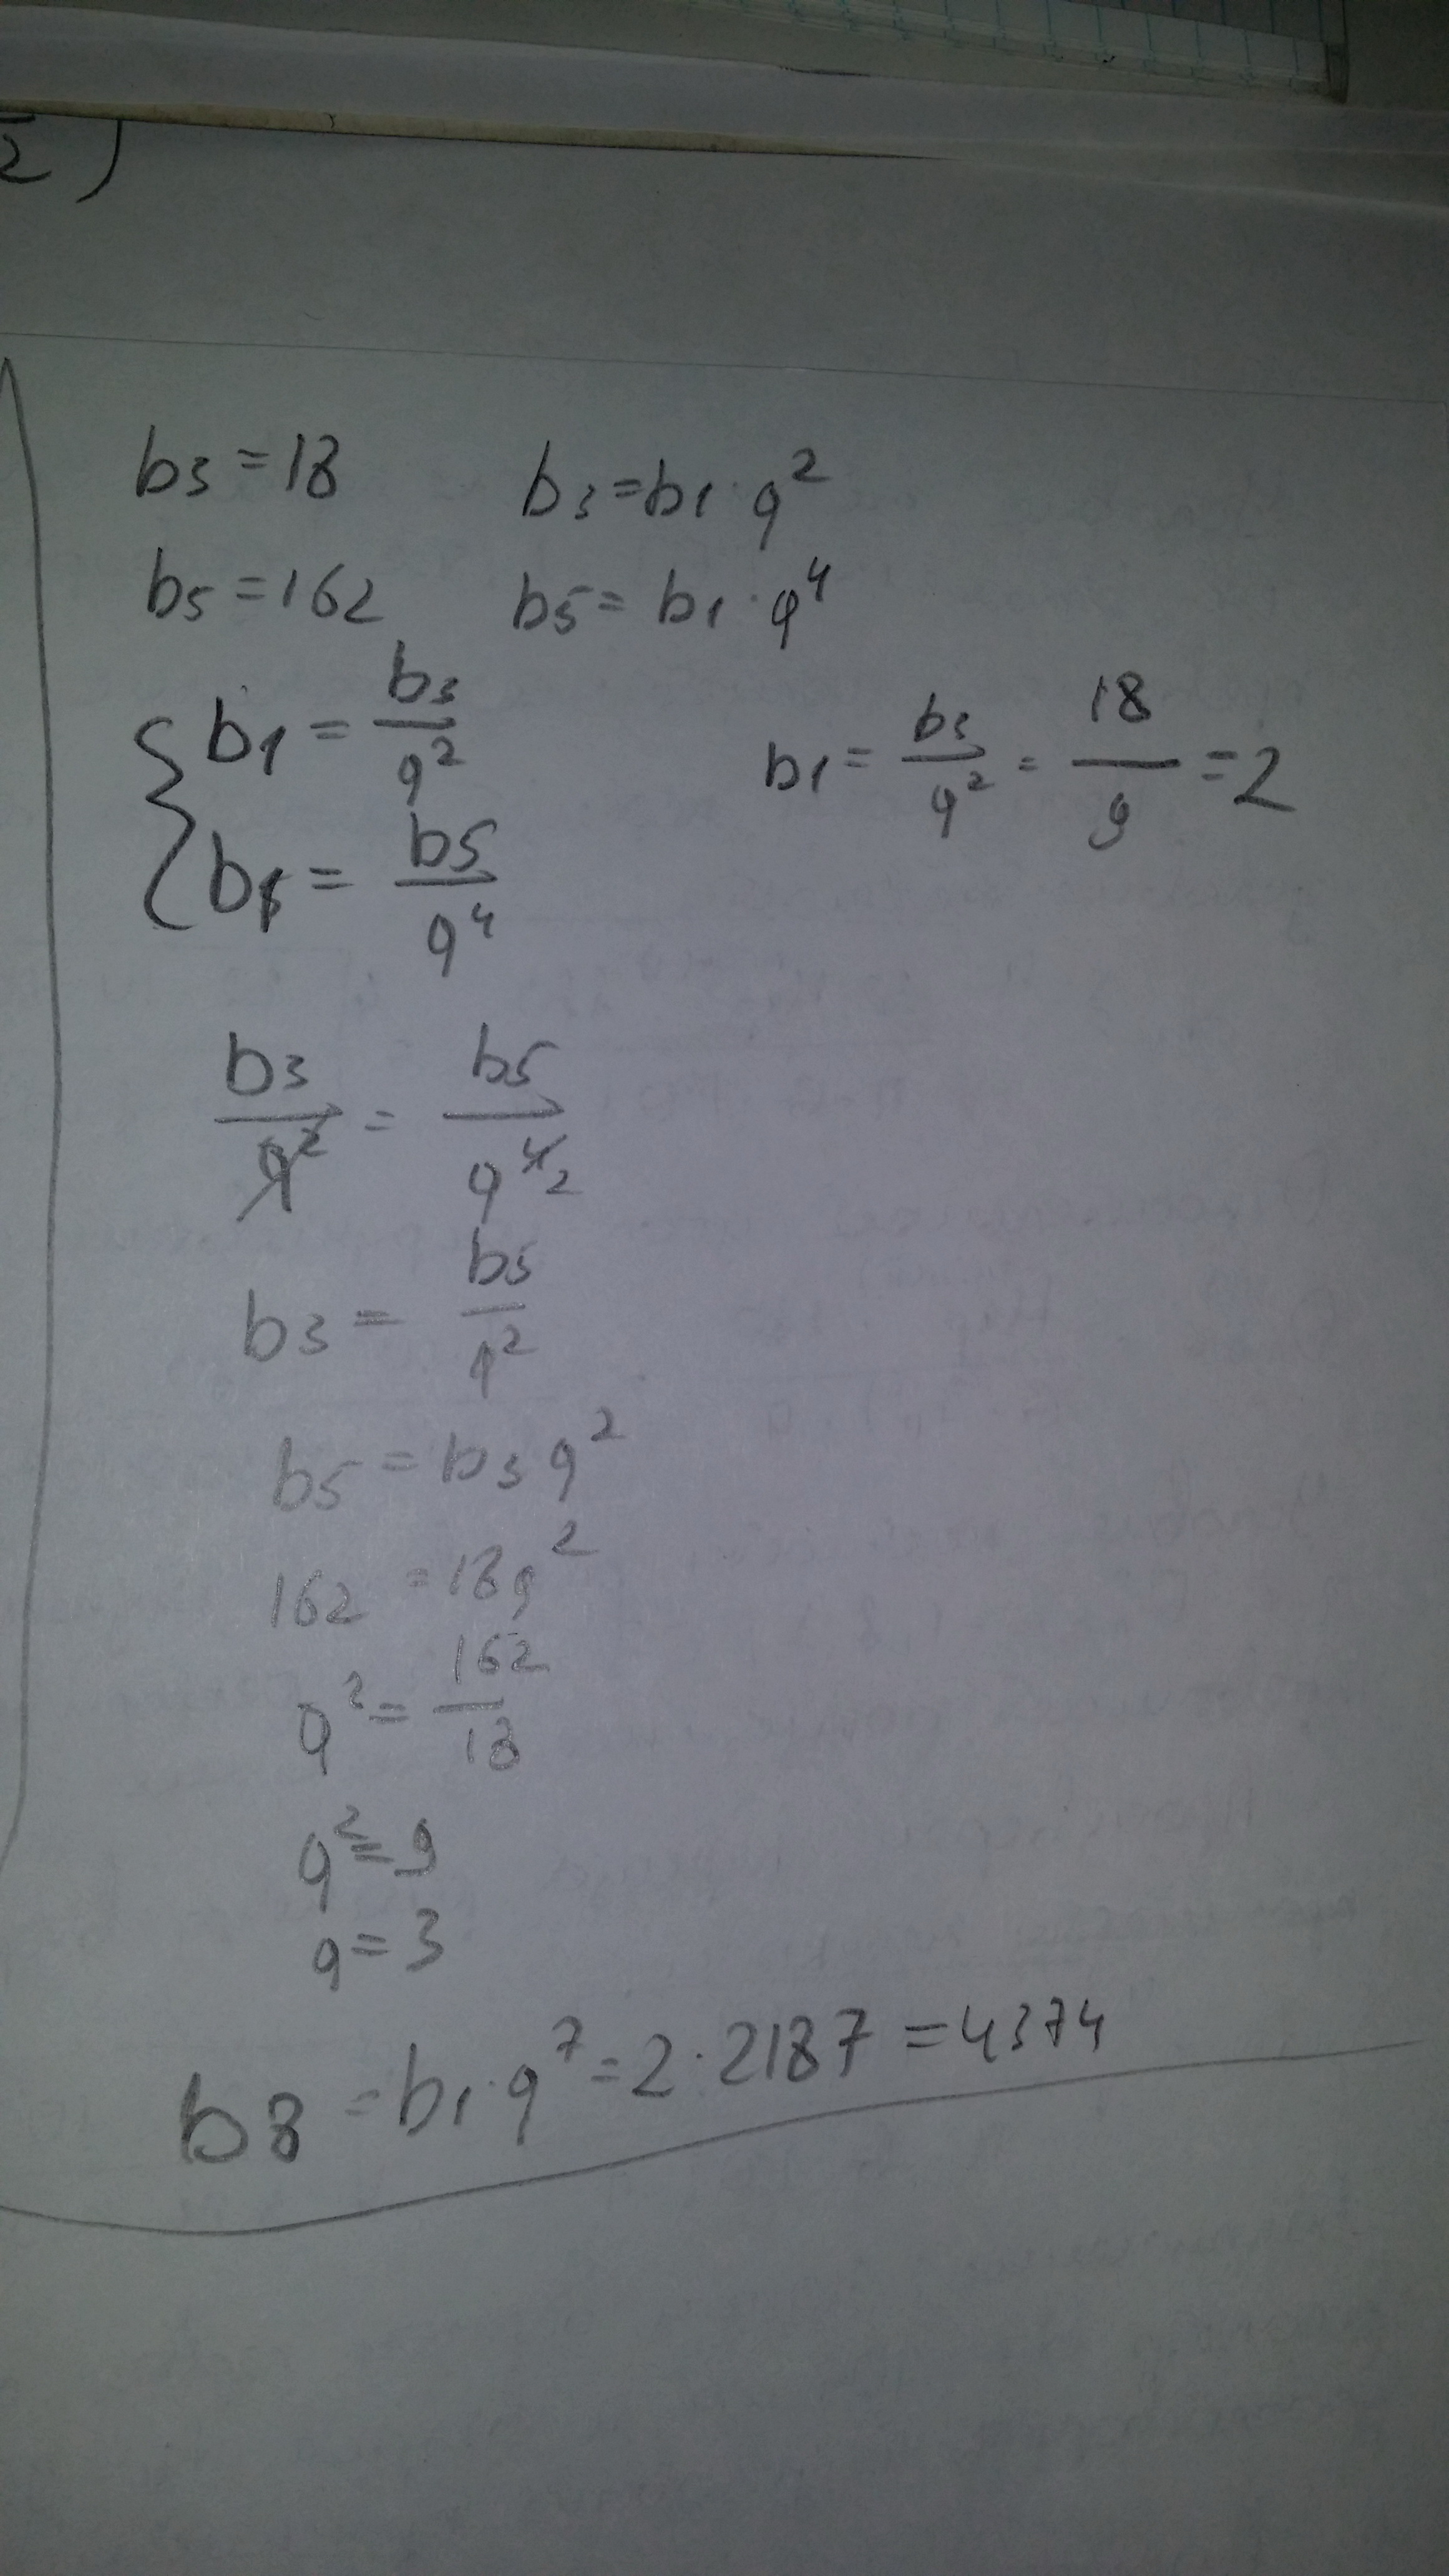 2 )
b3 = 18 b3 = b1 · q^2
b5 = 162 b5 = b1 · q^4
{ b1 = b3/q^2
b1 = b3/q^2 = 18/9 = 2
b1 = b5/q^4
b3/q^2 = b5/q^4 2
b3 = b5/q^2
b5 = b3 q^2
162 = 18q^2
q^2 = 162/18
q^2 = 9
q = 3
b8 = b1 · q^7 = 2 · 2187 = 4374